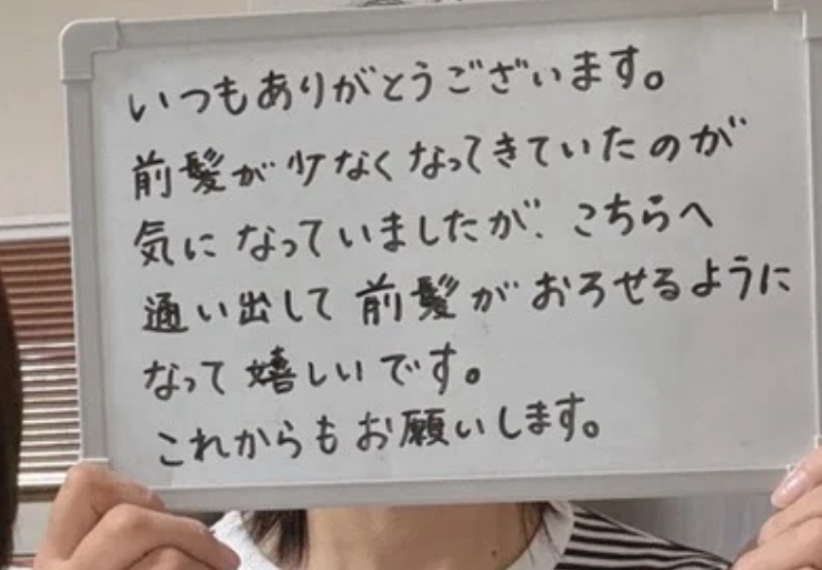 いつもありがとうございます。
前髪が少なくなってきていたのが
気になっていましたが、こちらへ
通い出して前髪がおろせるように
なって嬉しいです。
これからもお願いします。